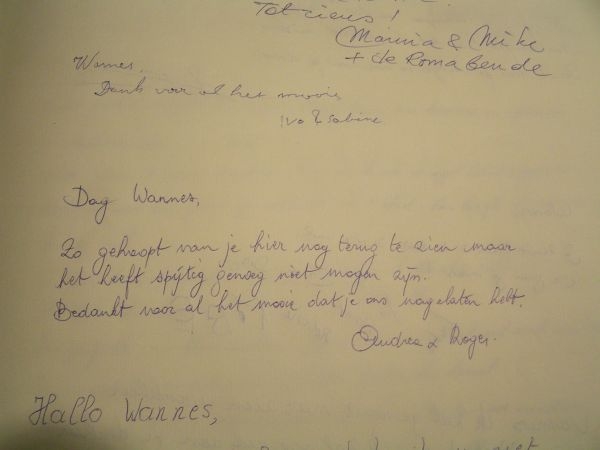 Tot ziens!
Marina & Mike
+ de Roma bende
Wannes,
Dank voor al het moois
Ivo & Sabine
Dag Wannes,
Zo gehoopt van je hier nog terug te zien maar
het heeft spijtig genoeg niet mogen zijn.
Bedankt voor al het mooie dat je ons nagelaten hebt.
Andrea & Roger.
Hallo Wannes,
niet